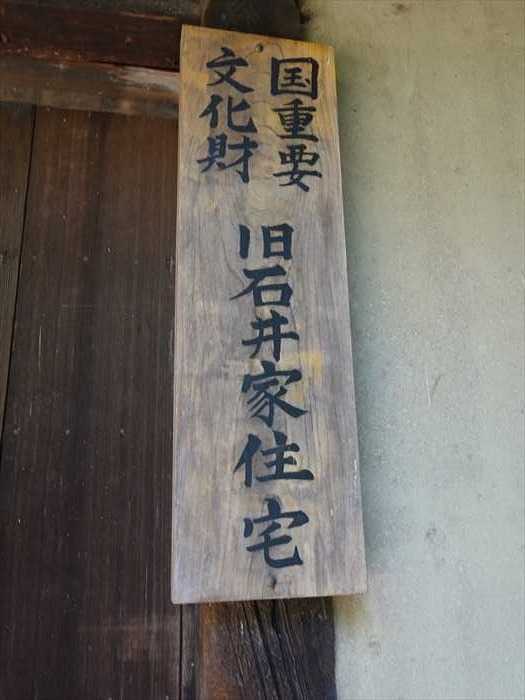 国重要
文化財
旧石井家住宅